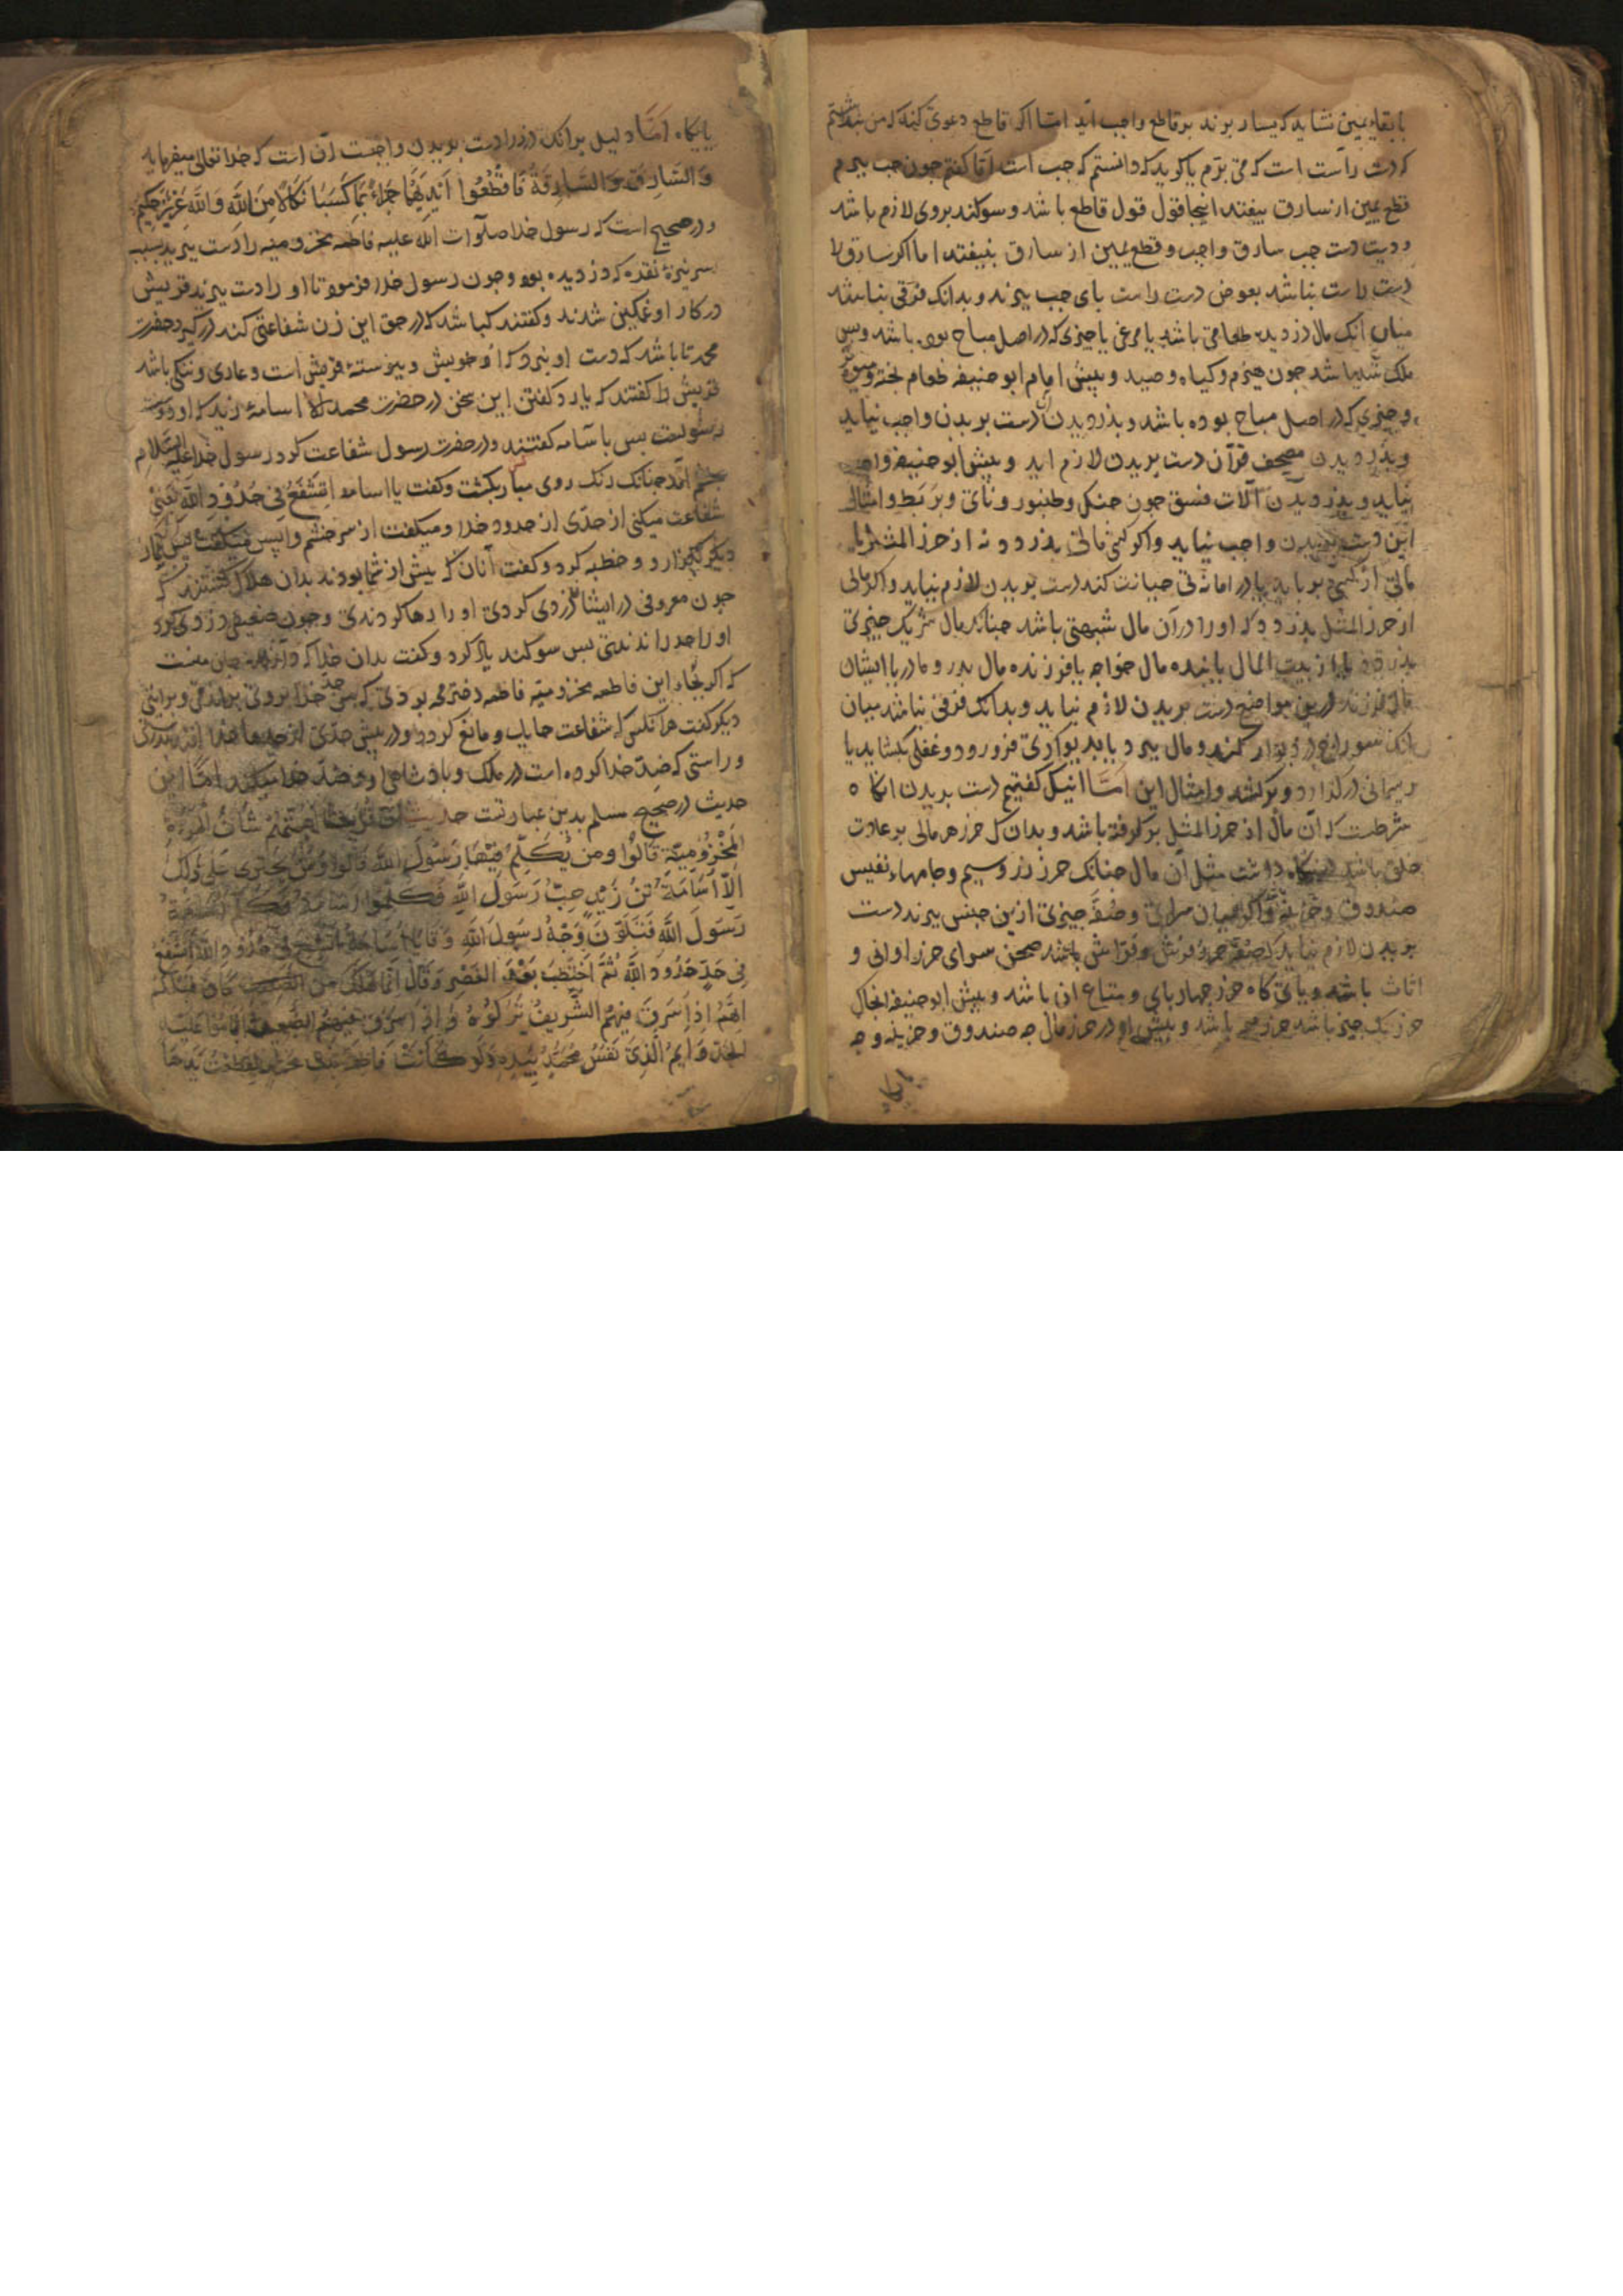 با بقاء یمین نشاید که یسار برند بر قاطع واجب آید امّا اکر قاطع دعوی کند که من بنداشتم
که دست راست است که می برّم یا کوید که دانستم که جب است امّا کفتم جون جب ببرم
قطع یمین از سارق بیفتد اینجا قول قول قاطع باشد و سوکند بروی لازم باشد
و دیت دست جب سارق واجب و قطع یمین از سارق نیفتد اما اکر سارق را
دست راست نباشد بعوض دست راست بای جب ببرند و بدانک فرقی نباشد
میان انک مال دزدیده طعامی باشد یا مرغی یا جیزی که در اصل مباح بوده باشد و بس
ملک شده باشد جون هیزم و کیاه و صید و بیش امام ابو حنیفه طعام بخته و میوه تر
و جیزی که در اصل مباح بوده باشد و بدزدیدن آن دست بریدن واجب نیاید
و بدزدیدن مصحف قرآن دست بریدن لازم اید و بیش ابو حنیفه واجب
نیاید و بدزدیدن آلات فسق جون جنک و طنبور و نای و بربط و امثال
این دست بریدن واجب نیاید و اکر کسی مالی بدزدد نه از حرز المثل یا
مالی از کسی برباید یا در امانتی خیانت کند دست بریدن لازم نیاید و اکر مالی
از حرز المثل بدزدد که او را در آن مال شبهتی باشد جنانک مال شریک جیزی
بدزدد یا از بیت المال یا بنده مال خواجه یا فرزنده مال بدر و مادر یا ایشان
مال فرزند درین مواضع دست بریدن لازم نیاید و بدانک فرقی نباشد میان
انک سوراخ در دیوار کند و مال ببرد یا بدیواری فرو رود و قفلی بکشاید یا
ریسمانی در کذارد و برکشد و امثال این امّا انیک کفتیم دست بریدن انکاه
شرطست که آن مال از حرز المثل برکرفته باشد و بدان که حرز هر مالی بر عادت
خلق باشد در نکاه داشت مثل آن مال جنانک حرز زر و سیم و جامهاء نفیس
صندوق و خزینه و اکر میان سرای و صفّه جیزی ازین جنس ببرند دست
بریدن لازم نیاید که صفّه حرز فرش و فراش باشد صحن سرای حرز اوانی و
اثاث باشد و بای کاه حرز جهاربای و متاع ان باشد و بیش ابو حنیفه انجا که
حرز یک جیز باشد حرز همه باشد و بیش او در حرز مال جه صندوق و خزینه و جه
بایکاه
بایکاه امّا دلیل بر انک دزد را دست بریدن واجبست آن است که خدا تعالی میفرماید
وَالسَّارِقُ وَالسَّارِقَةُ فَاقْطَعُوا اَيْدِيَهُمَا جَزَاءً بِمَا كَسَبَا نَكَالًا مِنَ اللَّهِ وَاللَّهُ عَزِيزٌ حَكِيمٌ
و در صحیح است که رسول خدا صلوات الله علیه فاطمه مخزومیه را دست ببرید بسبب
سر نیزهٔ نقره که دزدیده بود و جون رسول خدا فرمود تا او را دست ببرند قریش
در کار او غمکین شدند و کفتند کباشد که در حق این زن شفاعتی کند در کیرد حضرت
محمد تا باشد که دست او نبرد که او خویش و بیوستهٔ قریش است و عاری و ننکی باشد
قریش را کفتند که یارد کفتن این سخن در حضرت محمد الا اسامهٔ زید که او دوست
رسولست بس با سامه کفتند و در حضرت رسول شفاعت کرد رسول خدا علیه السلام
بخشم آمد جنانک رنک روی مبارکش بکشت و کفت یا اسامه اَتَشْفَعُ فِی حُدُودِ اللَّهِ یعنی
شفاعت میکنی از حدّی از حدود خدا و میکفت از سر خشم وابس میکفت بس نماز
دیکر بکزارد و خطبه کرد و کفت آنان که بیش از شما بودند بدان هلاک کشتند که
جون معروفی در ایشان دزدی کردی او را رها کردندی و جون ضعیفی دزدی کرد
او را حد راندندی بس سوکند یاد کرد و کفت بدان خدا که
که اکر بجاء این فاطمه مخزومیّه فاطمه دختر محمد بودی که من حدّ خدا بروی براندمی و برانتی
دیکر کفت هر آنکس که شفاعت حایل و مانع کردد در بیش حدّی از حدهاء خدا
و راستی که ضدّ خدا کرده است در ملک و بادشاهی او و ضدّ خدا امّا این
حدیث در صحیح مسلم بدین عبارتست حدیث اَنَّ قُرَیْشًا اَهَمَّهُمْ شَأنُ الْمَرْءَةِ
الْمَخْزُومِيَّةِ قَالُوا وَمَنْ يُكَلِّمُ فِيْهَا رَسُولَ اللَّهِ قَالُوا وَمَنْ يَجْتَرِی عَلَی ذٰلِكَ
اِلَّا اُسَامَةُ بْنُ زَيْدٍ حِبُّ رَسُولِ اللَّهِ فَكَلَّمُوا اُسَامَةَ
رَسُولَ اللَّهِ فَتَلَوَّنَ وَجْهُ رَسُولِ اللَّهِ وَقَالَ يَا اُسَامَةُ
فِی حَدٍّ حُدُودِ اللَّهِ ثُمَّ اخْتَطَبَ بَعْدَ الْعَصْرِ وَقَالَ اِنَّمَا هَلَكَ مَنْ كَانَ قَبْلَكُمْ
اَنَّهُمْ اِذَا سَرَقَ فِيْهِمُ الشَّرِيفُ تَرَكُوهُ وَاِذَا سَرَقَ فِيهِمُ الضَّعِيفُ اَقَامُوا عَلَيْهِ
الْحَدَّ وَاَيْمُ الَّذِی نَفْسُ مُحَمَّدٍ بِيَدِهِ وَلَوْ كَانَتْ فَاطِمَةُ بِنْتُ مُحَمَّدٍ لَقَطَعْتُ يَدَهَا